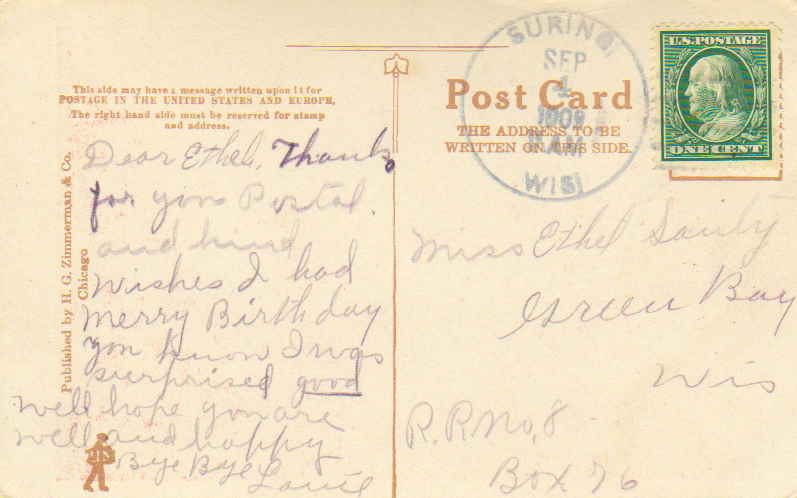 This side may have a message written upon it for
POSTAGE IN THE UNITED STATES AND EUROPE,
The right hand side must be reserved for stamp
and address.
Post Card
THE ADDRESS TO BE
WRITTEN ON THIS SIDE.
SURING,
SEP
1909
WIS
U.S. POSTAGE
ONE CENT
Published by H. G. Zimmerman & Co.
Chicago
Dear Ethel, Thanks
for your Postal
and kind
wishes I had
merry Birthday
you know I was
surprised good
well hope you are
well and happy
Bye Bye
Miss Ethel
Green Bay
Wis
R. R No, 8
Box 76